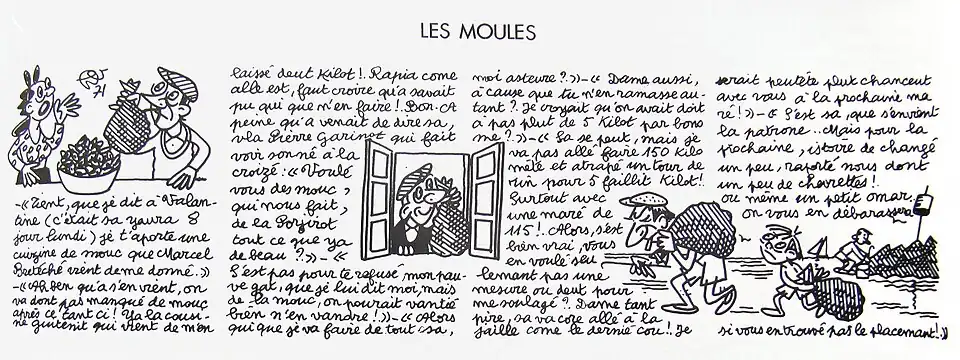 LES MOULES
-« Tient, que je dit à Valan-
tine (c'était sa yaura 8
jour lundi) je t'aporte une
cuizine de mouc que Marcel
Pretéché vient de me donné.»
-« Ah ben qu'a s'en vient, on
va dont pas manqué de mouc
après ce tant ci! Ya la cousi-
ne qui vient de m'en
laissé deut Kilot!. Rapia come
alle est, faut croire qu'a savait
pu qui que n'en faire!. Bon. A
peine qu'a venait de dire sa,
v'la Pierre Garinet qui fait
voir son né à la
croizé: « Voulé
vous des mouc,
qui nous fait,
de la Porjirot
tout ce que ya
de beau?.»-«
S'est pas pour te refusé, mon pau-
ve gat, que je lui dit moi, mais
de la mouc, on pourait vantié
bien n'en vandre!.»-« Alors
qui que je va faire de tout sa,
moi asteure?.»-« Dame aussi,
à cause que tu n'en ramasse au-
tant?. Je croyait qu'on avait doit
à pas plut de 5 Kilot par bons-
me?.»-« Sa se peut, mais je
va pas allé faire 150 Kilo
mète et atrapé un tour de
rin pour 5 faillit Kilot!.
Surtout avec
une maré de
115!. Alors, s'est
bien vrai, vous
en voulé seu-
lement pas une
mesure ou deut pour
me soulagé?. Dame tant
pire, sa va core allé à la
faille come le dernié cou!. Je
serait peutète plut chanceut
avec vous à la prochaine ma
ré!»-« S'est sa, que s'enrient
la patrone... Mais pour la
prochaine, istoire de changé
un peu, raporté nous dont
un peu de chevrettes!.
ou même un petit omar,
on vous en débarassra
si vous en trouvé pas le placemant!.»